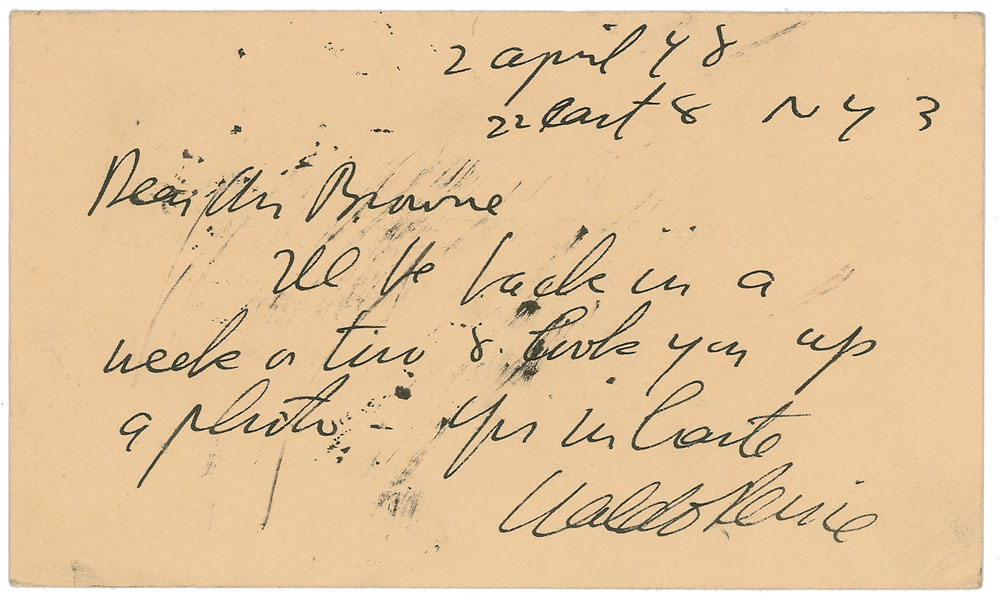 2 april 48
22 East 8 N Y 3
Dear Mr Browne
I'll be back in a
week or two & look you up
a photo - Yrs in haste
Waldo Peirce